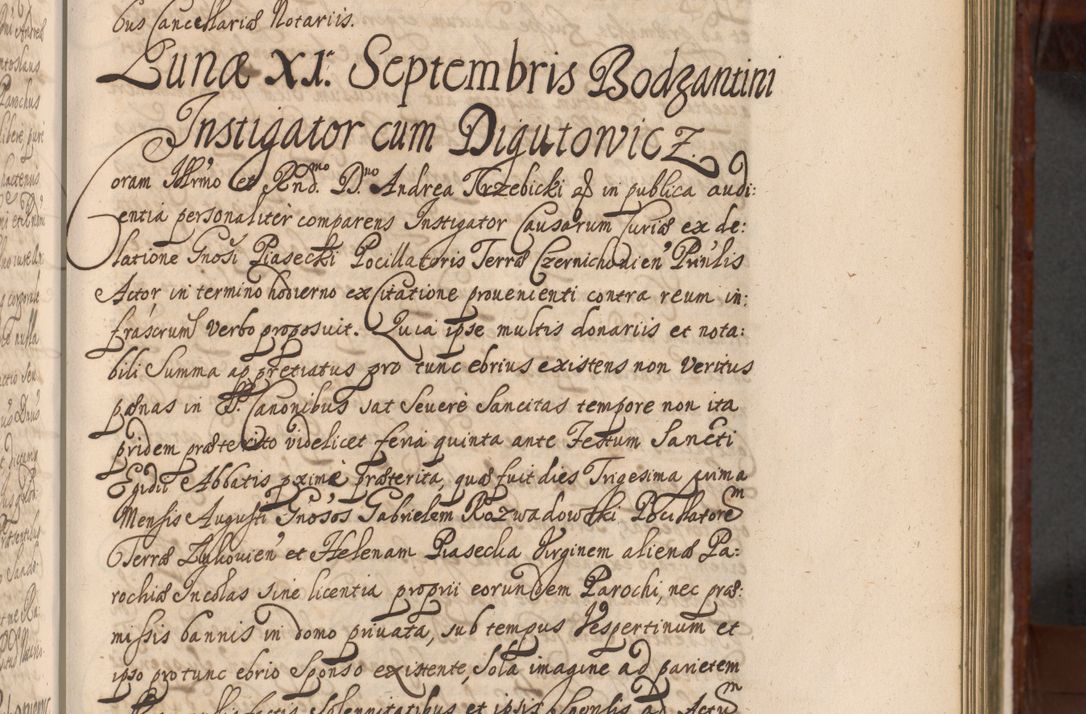 bus Cancellariæ Notariis.
Lunæ XI. Septembris Bodzantini
Instigator cum Digutowicz.
Coram Illrmo et Rndmo Dno Andrea Trzebicki &c in publica audi:
entia personaliter comparens Instigator Causarum Curiæ ex de:
latione Gnosi Piasecki Pocillatoris Terræ Czernichovien Prinlis
Actor in termino hodierno ex Citatione provenienti contra reum in:
frascrum verbo proposuit. Quia ipse multis donariis et nota:
bili Summa appretiatus pro tunc ebrius existens non veritus
pænas in S. Canonibus sat severè sancitas tempore non ita
pridem præterito videlicet feria quinta ante Festum Sancti
Egidii Abbatis pximè præterita, quæ fuit dies Trigesima prima
Mensis Augusti Gnosos Gabrielem Rozwadowski Pocillatorem
Terræ Zytomien et Helenam Piasecka Virginem alienæ Pa:
rochiæ Incolas sine licentia proprii eorundem Parochi, nec præ:
missis bannis in domo privata, sub tempus Vespertinum et
ipso pro tunc ebrio Sponso existente, sola imagine ad parietem
factis Solennitatibus et ipsis Sponsis ad Actum